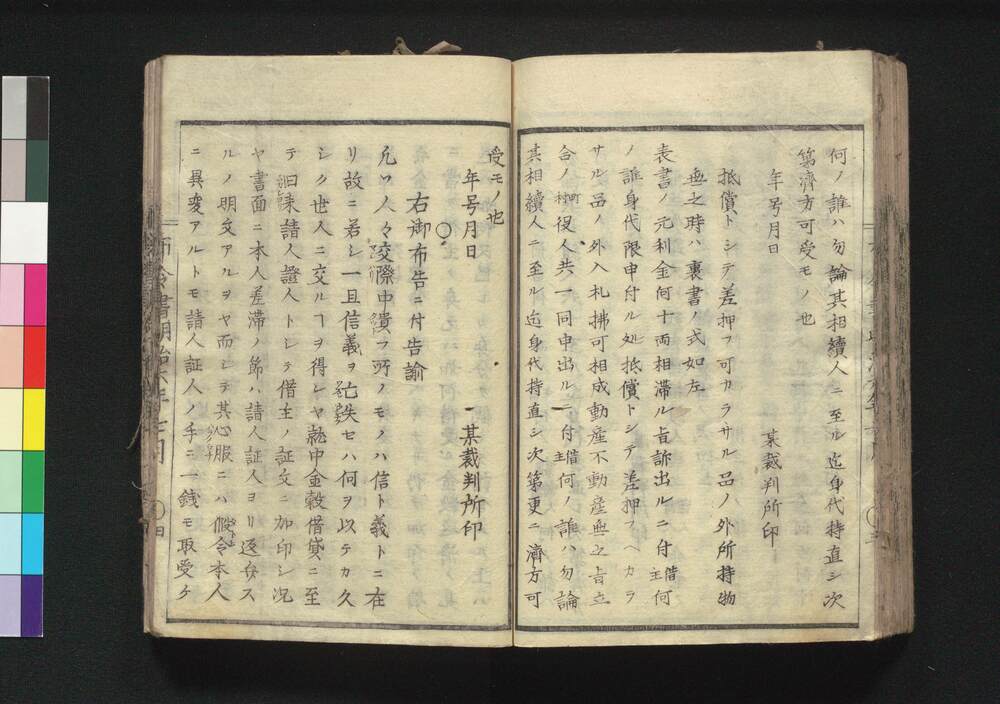 何ノ誰ハ勿論其相續人ニ至ル迄身代持直シ次
第濟方可受モノ也
年号月日
某裁判所印
抵償トシテ差押フ可カラサル品ノ外所持物
無之時ハ裏書ノ式如左
表書ノ元利金何十両相滞ル旨訴出ルニ付借主何
ノ誰身代限申付ル処抵償トシテ差押フヘカラ
サル品ノ外入札拂可相成動産不動産無之旨立
合ノ町村役人共一同申出ル付借主何ノ誰ハ勿論
其相續人ニ至ル迄身代持直シ次第更ニ濟方可
受モノ也
年号月日
某裁判所印
〇
右御布告ニ付告諭
凡ソ人々交際中貴フ所ノモノハ信ト義トニ在
リ故ニ若シ一旦信義ヲ亡失セハ何ヲ以テカ久
シク世人ニ交ルヿヲ得ンヤ就中金穀借貸ニ至
テ請人證人トシテ借主ノ証文ニ加印シ况
ヤ書面ニ本人差滞ノ節ハ請人証人ヨリ返弁ス
ルノ明文アルヲヤ而シテ其心服ニハ假令本人
ニ異変アルトモ請人証人ノ手ニ一銭モ取受ケ
布令書明治六年七月
〇四